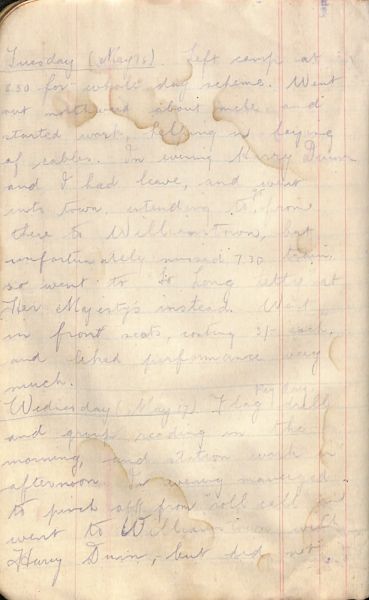 Tuesday (May 16). Left camp at
8.30 for whole day scheme. Went
out northward about mile and
started work, helping in laying
of cables. In evening Harry Dunn
and I had leave, and went
into town, intending to go from
there to Williamstown, but
unfortunately missed 7.30 train
so went to "So Long Letty" at
Her Majesty's instead. Went
in front seats, costing 3/- each,
and liked performance very
much.
Pay Day
Wednesday (May 17). Flag drill
and group reading in the
morning, and station work in
afternoon. In evening managed
to pinch off from roll call and
went to Williamstown with
Harry Dunn, but did not